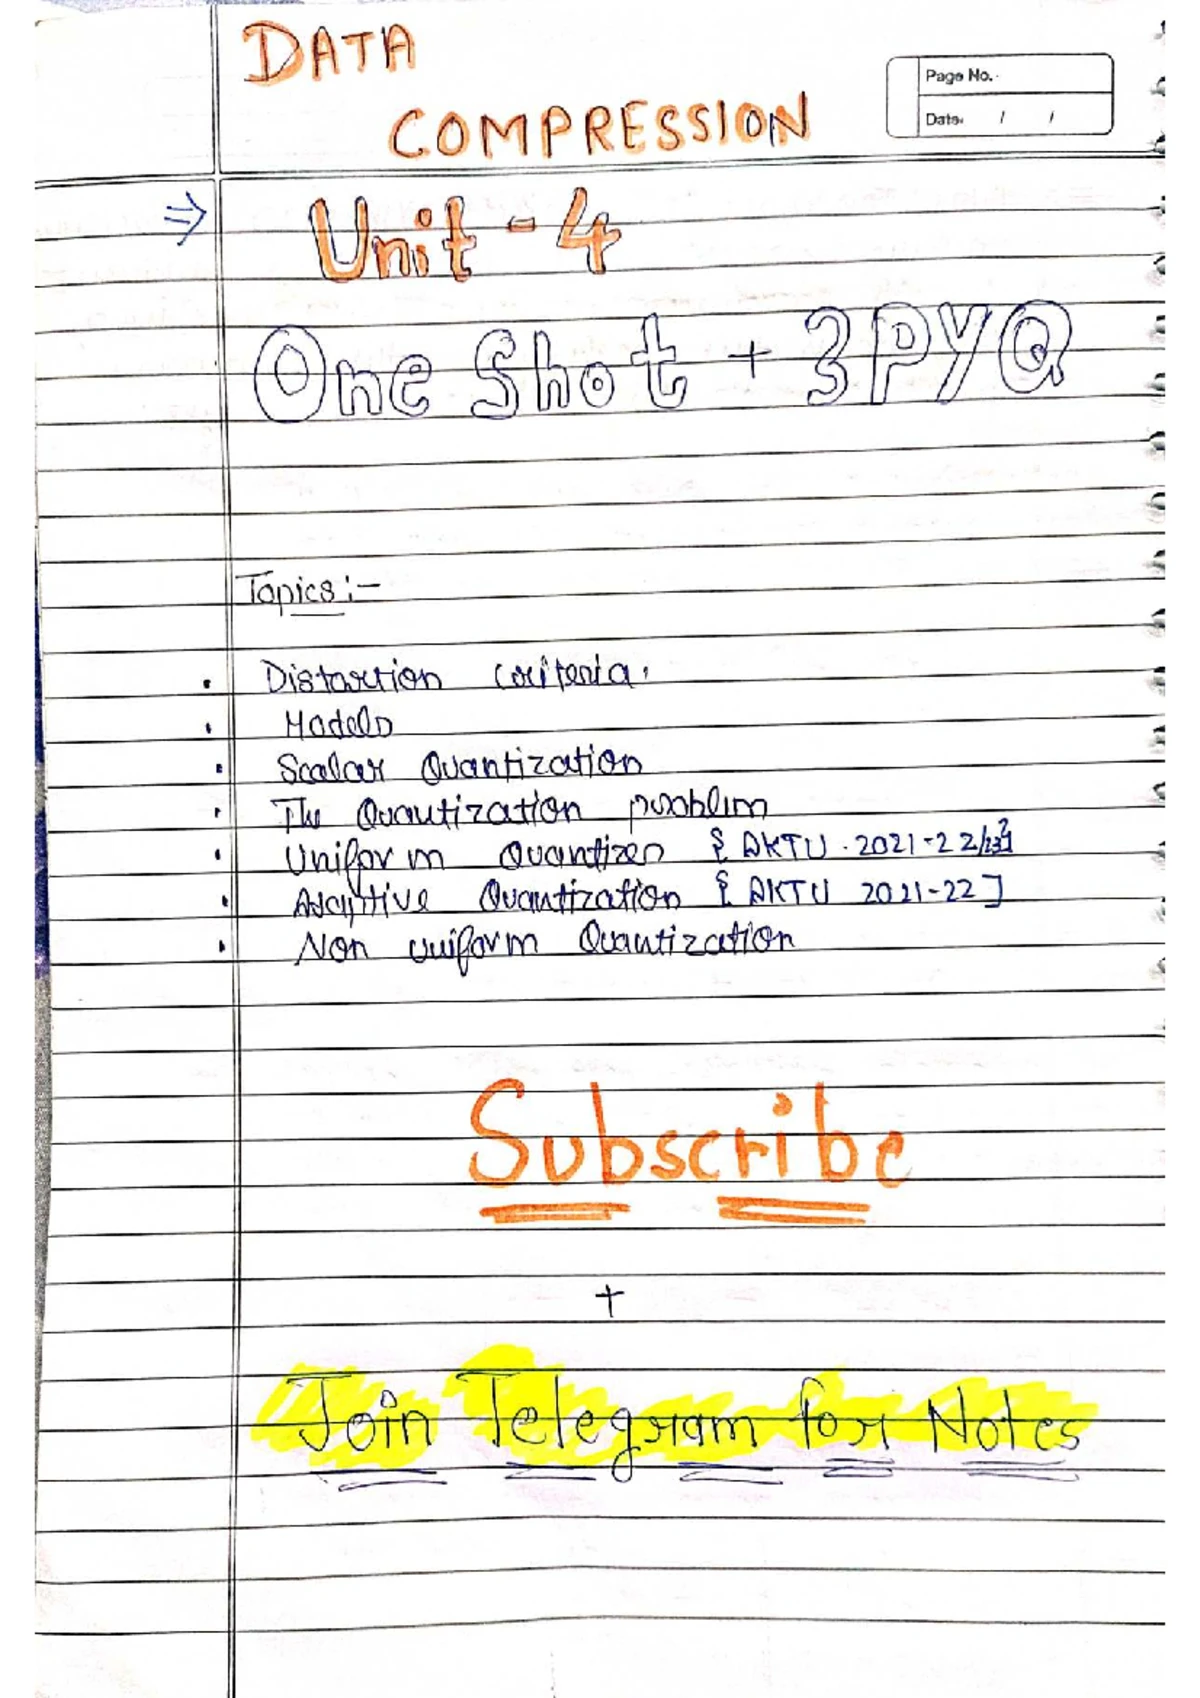 DATA
COMPRESSION
Page No.
Date / /
⇒ Unit - 4
One Shot + 3PYQ
Topics :-
• Distortion Criteria.
• Models
• Scalar Quantization
• The Quantization problem
• Uniform Quantizer { AKTU . 2021-22/23}
• Adaptive Quantization { AKTU 2021-22 ]
• Non uniform Quantization
Subscribe
+
Join Telegram for Notes